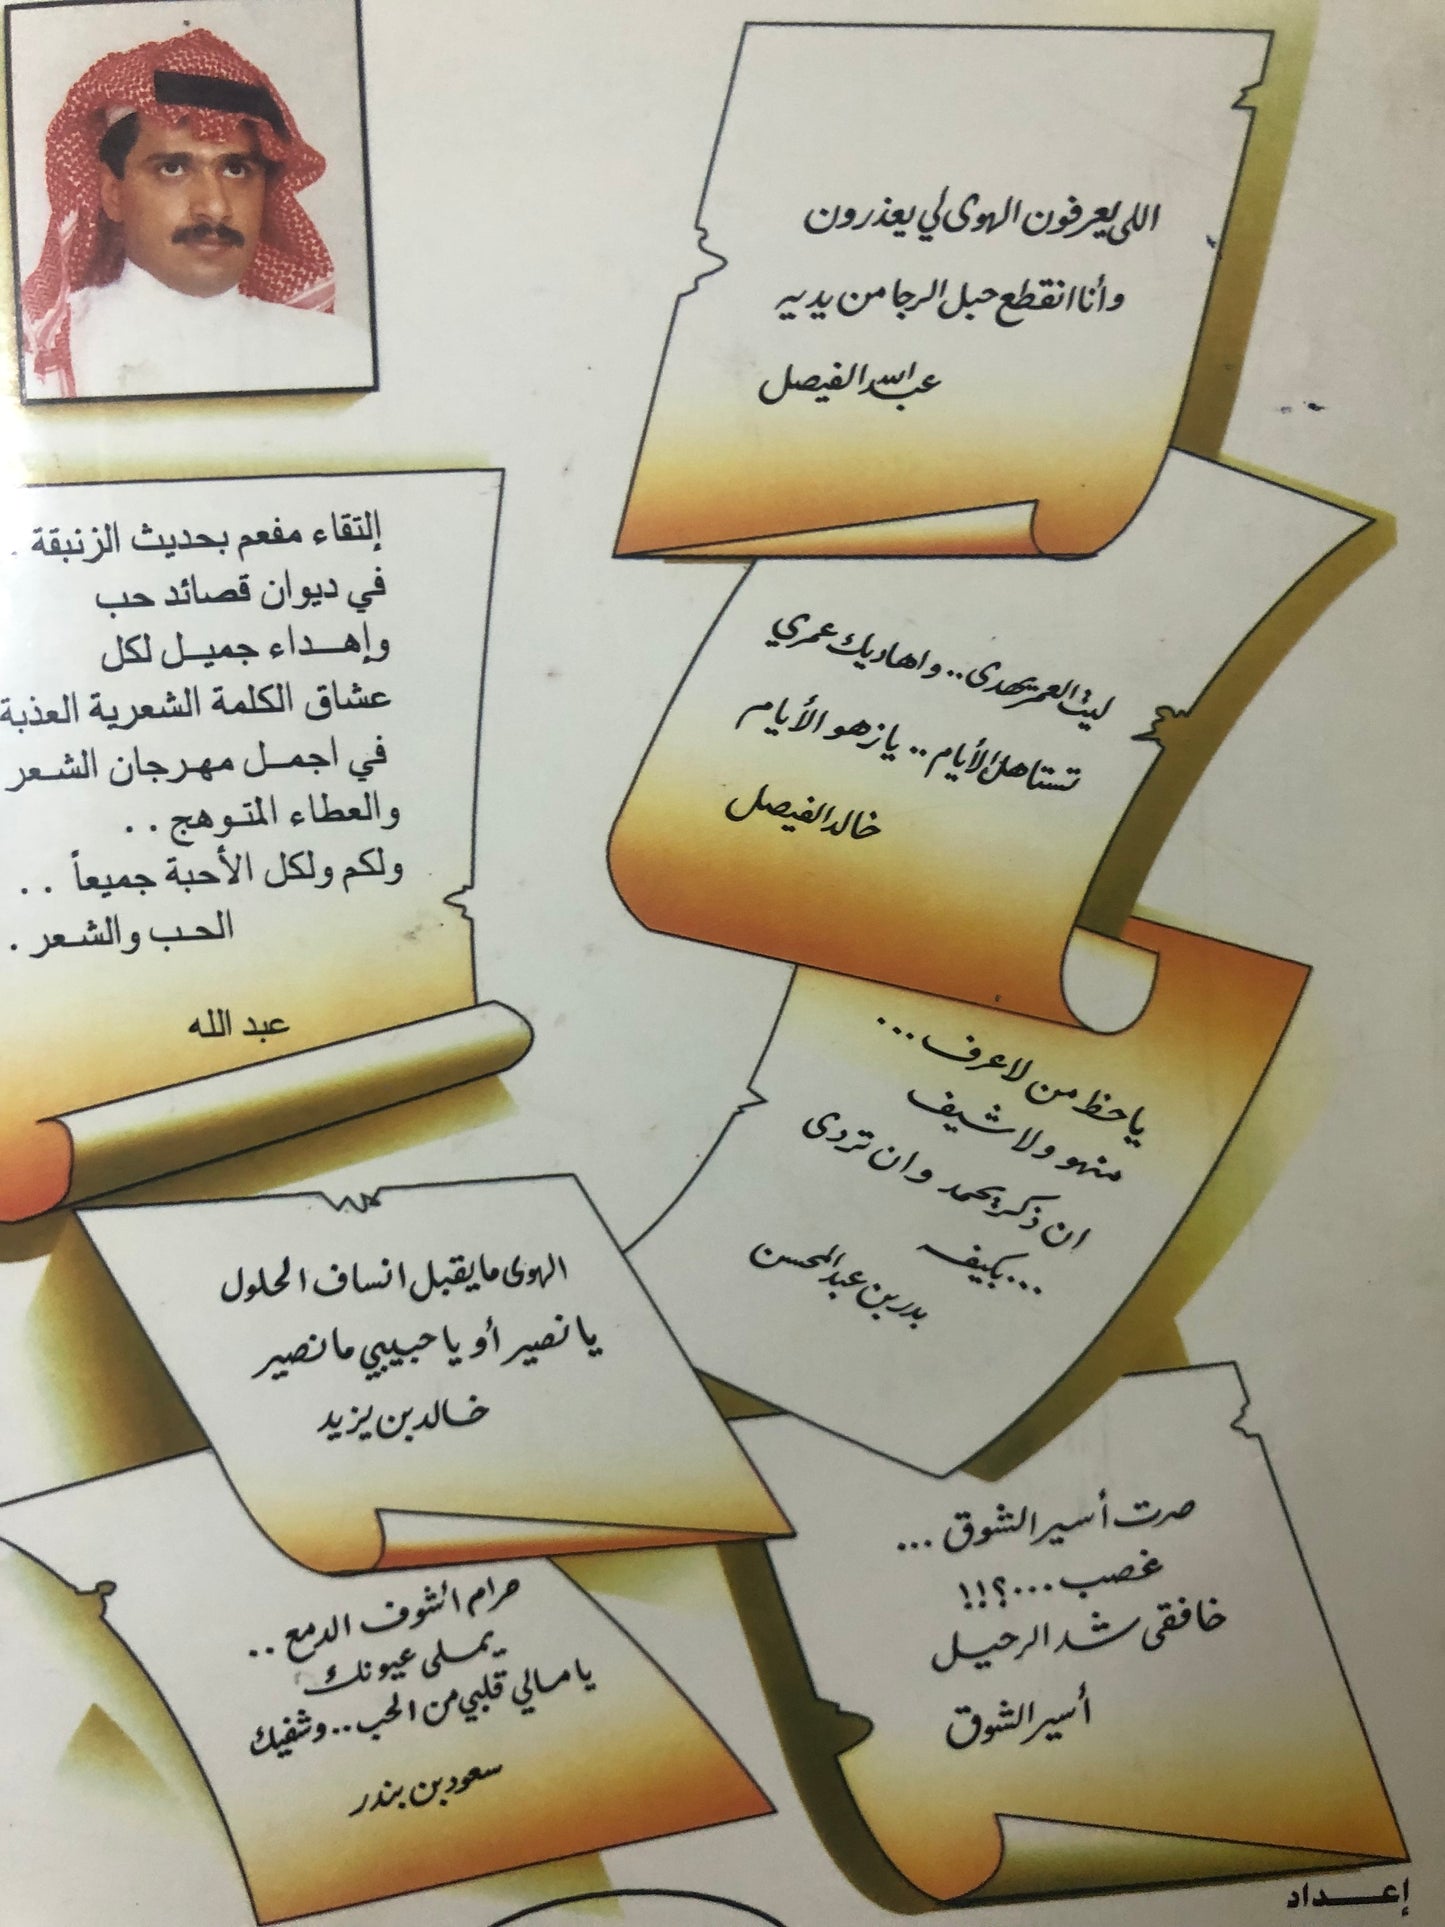 اللي يعرفون الهوى لي يعذرون
وأنا انقطع حبل الرجا من يديه
عبدالله الفيصل
ليت العمر يهدى .. واهاديك عمري
تستاهل الأيام .. يا زهو الأيام
خالد الفيصل
يا حظ من لا عرف ...
منهو ولا شيف
ان ذكر يحمد وان تردى
... بكيفه
بدر بن عبدالمحسن
صرت أسير الشوق ...
غصب ...؟!!
خافقى شد الرحيل
أسير الشوق
إلتقاء مفعم بحديث الزنبقة .
في ديوان قصائد حب
وإهـداء جميـل لكل
عشاق الكلمة الشعرية العذبة
في اجمـل مهرجان الشـعر
والعطاء المتوهج . .
ولكم ولكل الأحبة جميعاً . .
الحـب والشـعر .
عبد الله
الهوى ما يقبل انساف الحلول
يا نصير أو يا حبيبي ما نصير
خالد بن يزيد
حرام اشوف الدمع ..
يملى عيونك
يا مالي قلبي من الحب .. وشفيك
سعود بن بندر
إعــــداد